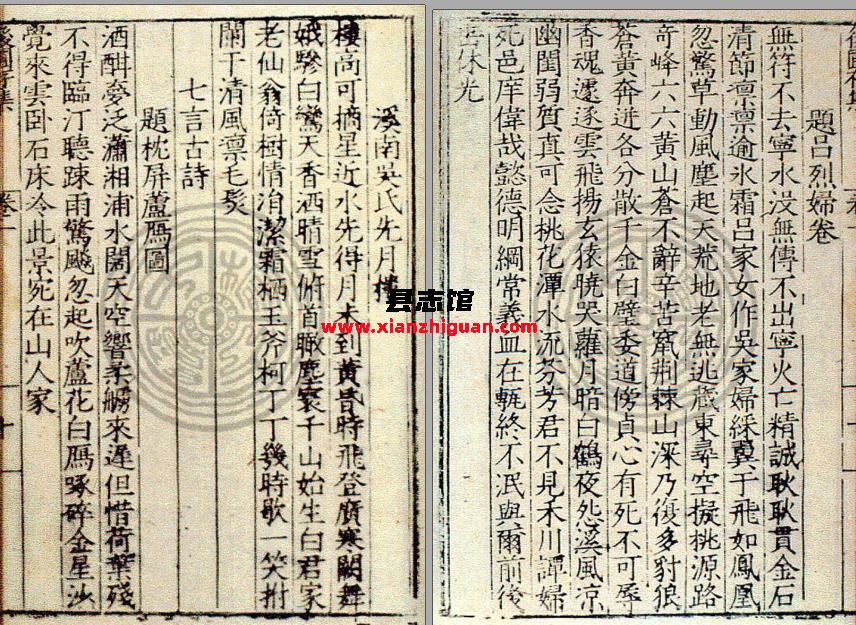 題呂烈婦卷
無符不去寧水没無傳不出寧火亡精誠耿耿貫金石
清節凛凛逾氷霜呂家女作吳家婦綵翼于飛如鳳凰
忽驚草動風塵起天荒地老無逃藏東尋空擬桃源路
奇峰六六黄山蒼不辭辛苦竄荆棘山深乃復多豺狼
蒼黄奔迸各分散千金白璧委道傍貞心有死不可辱
香魂遽逐雲飛揚玄猿曉哭蘿月暗白鶴夜怨溪風凉
幽閨弱質真可念桃花潭水流芬芳君不見禾川譚婦
死邑庠偉哉懿德明綱常義血在甎終不泯與爾前後
休光
溪南吳氏先月樓
樓高可摘星近水先得月未到黄昏時飛登廣寒闕舞
娥驂白鸞天香洒晴雪俯首瞰塵寰千山始生白君家
老仙翁倚樹情消潔霜栖玉斧柯丁丁幾時歌一笑拊
闌干清風凛毛髪
七言古詩
題枕屏蘆鴈圖
酒酣夢泛瀟湘浦水闊天空響柔艣來遲但惜荷葉殘
不得臨汀聽踈雨驚飈忽起吹蘆花白鴈啄碎金星沙
覺來雲卧石床冷此景宛在山人家
卷一
十
县志馆
www.xianzhiguan.com